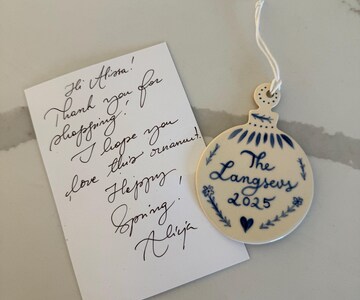 Hi Alissa!
Thank you for
shopping!
I hope you
love this ornament.
Happy
Spring!
Alicja
The
Langsevs
2025